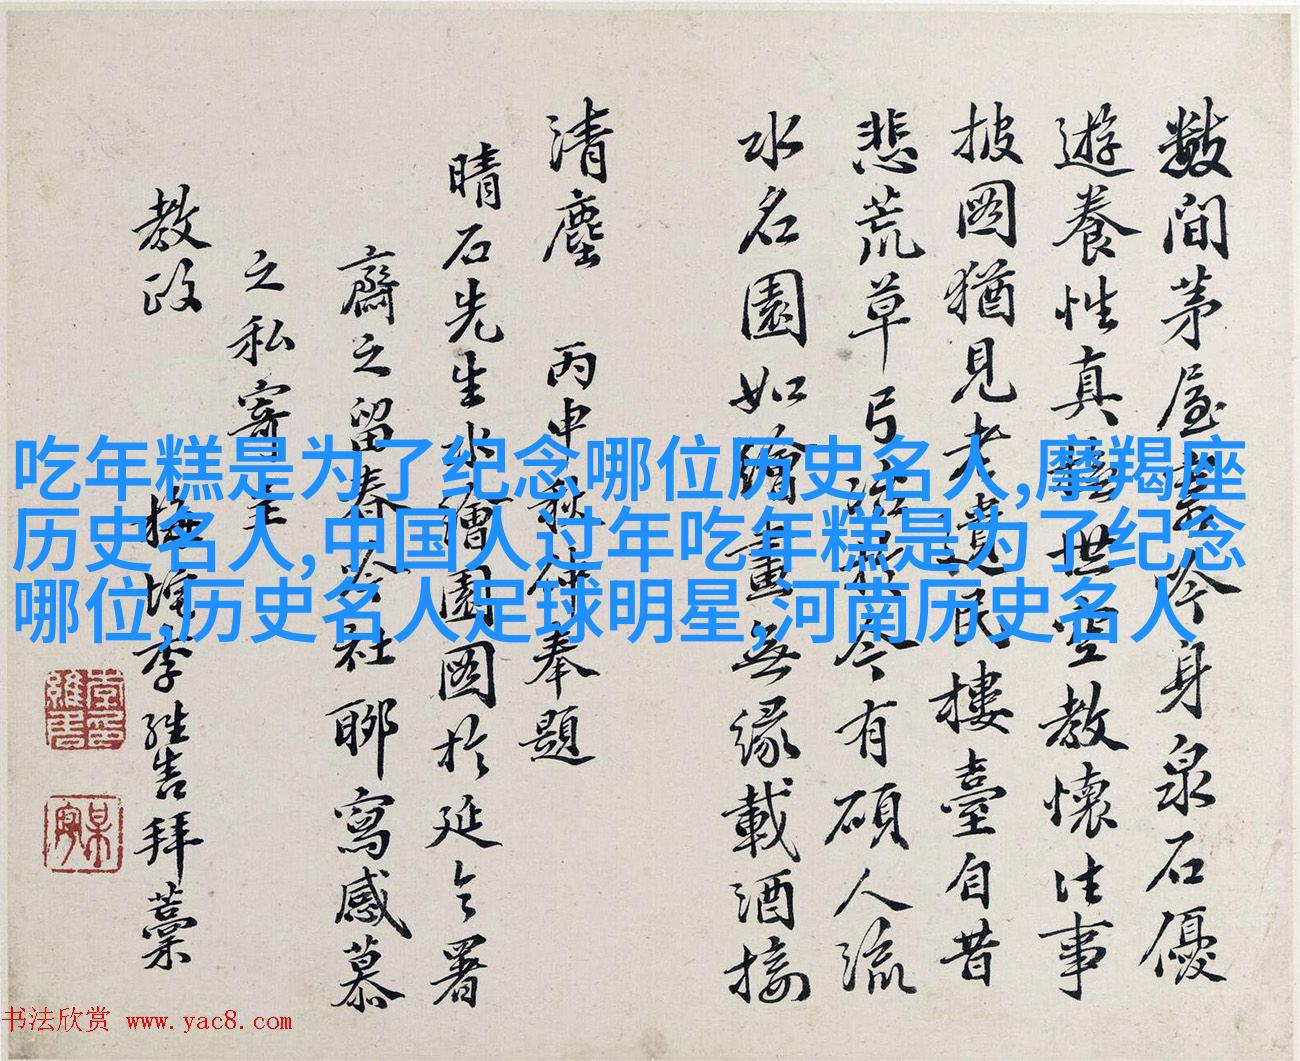 數間茅屋寄吟身泉石優
遊養性真世空教懷往事
披圖猶見老遺民樓臺自昔
悲荒草弓今有碩人流
水名園如繪畫無緣載酒接
清塵 丙申秋仲奉題
晴石先生水繪園圖於延令署
齋之留春吟社聊寫感慕
之私寄呈
教政
梅 李維 拜藁
吃年糕是为了纪念哪位历史名人,摩羯座
历史名人,中国人过年吃年糕是为了纪念
哪位,历史名人足球明星,河南历史名人
书法欣赏 www.yac8.com